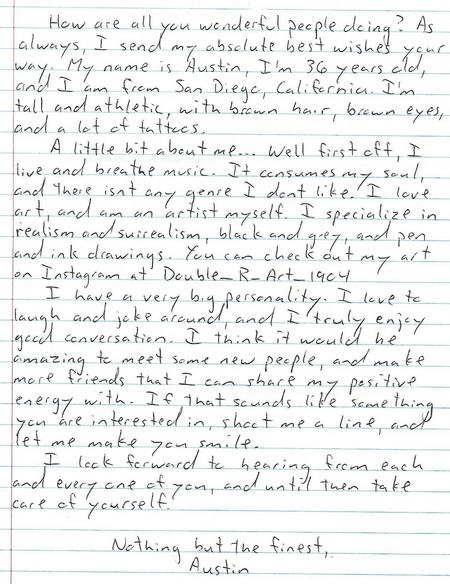 How are all you wonderful people doing? As
always, I send my absolute best wishes your
way. My name is Austin, I'm 36 years old,
and I am from San Diego, California. I'm
tall and athletic, with brown hair, brown eyes,
and a lot of tattoos.
A little bit about me... Well first off, I
live and breathe music. It consumes my soul,
and there isnt any genre I dont like. I love
art, and am an artist myself. I specialize in
realism and surrealism, black and grey, and pen
and ink drawings. You can check out my art
on Instagram at Double_R_Art_1904
I have a very big personality. I love to
laugh and joke around, and I truly enjoy
good conversation. I think it would be
amazing to meet some new people, and make
more friends that I can share my positive
energy with. If that sounds like something
you are interested in, shoot me a line, and
let me make you smile.
I look forward to hearing from each
and every one of you, and until then take
care of yourself.
Nothing but the finest,
Austin